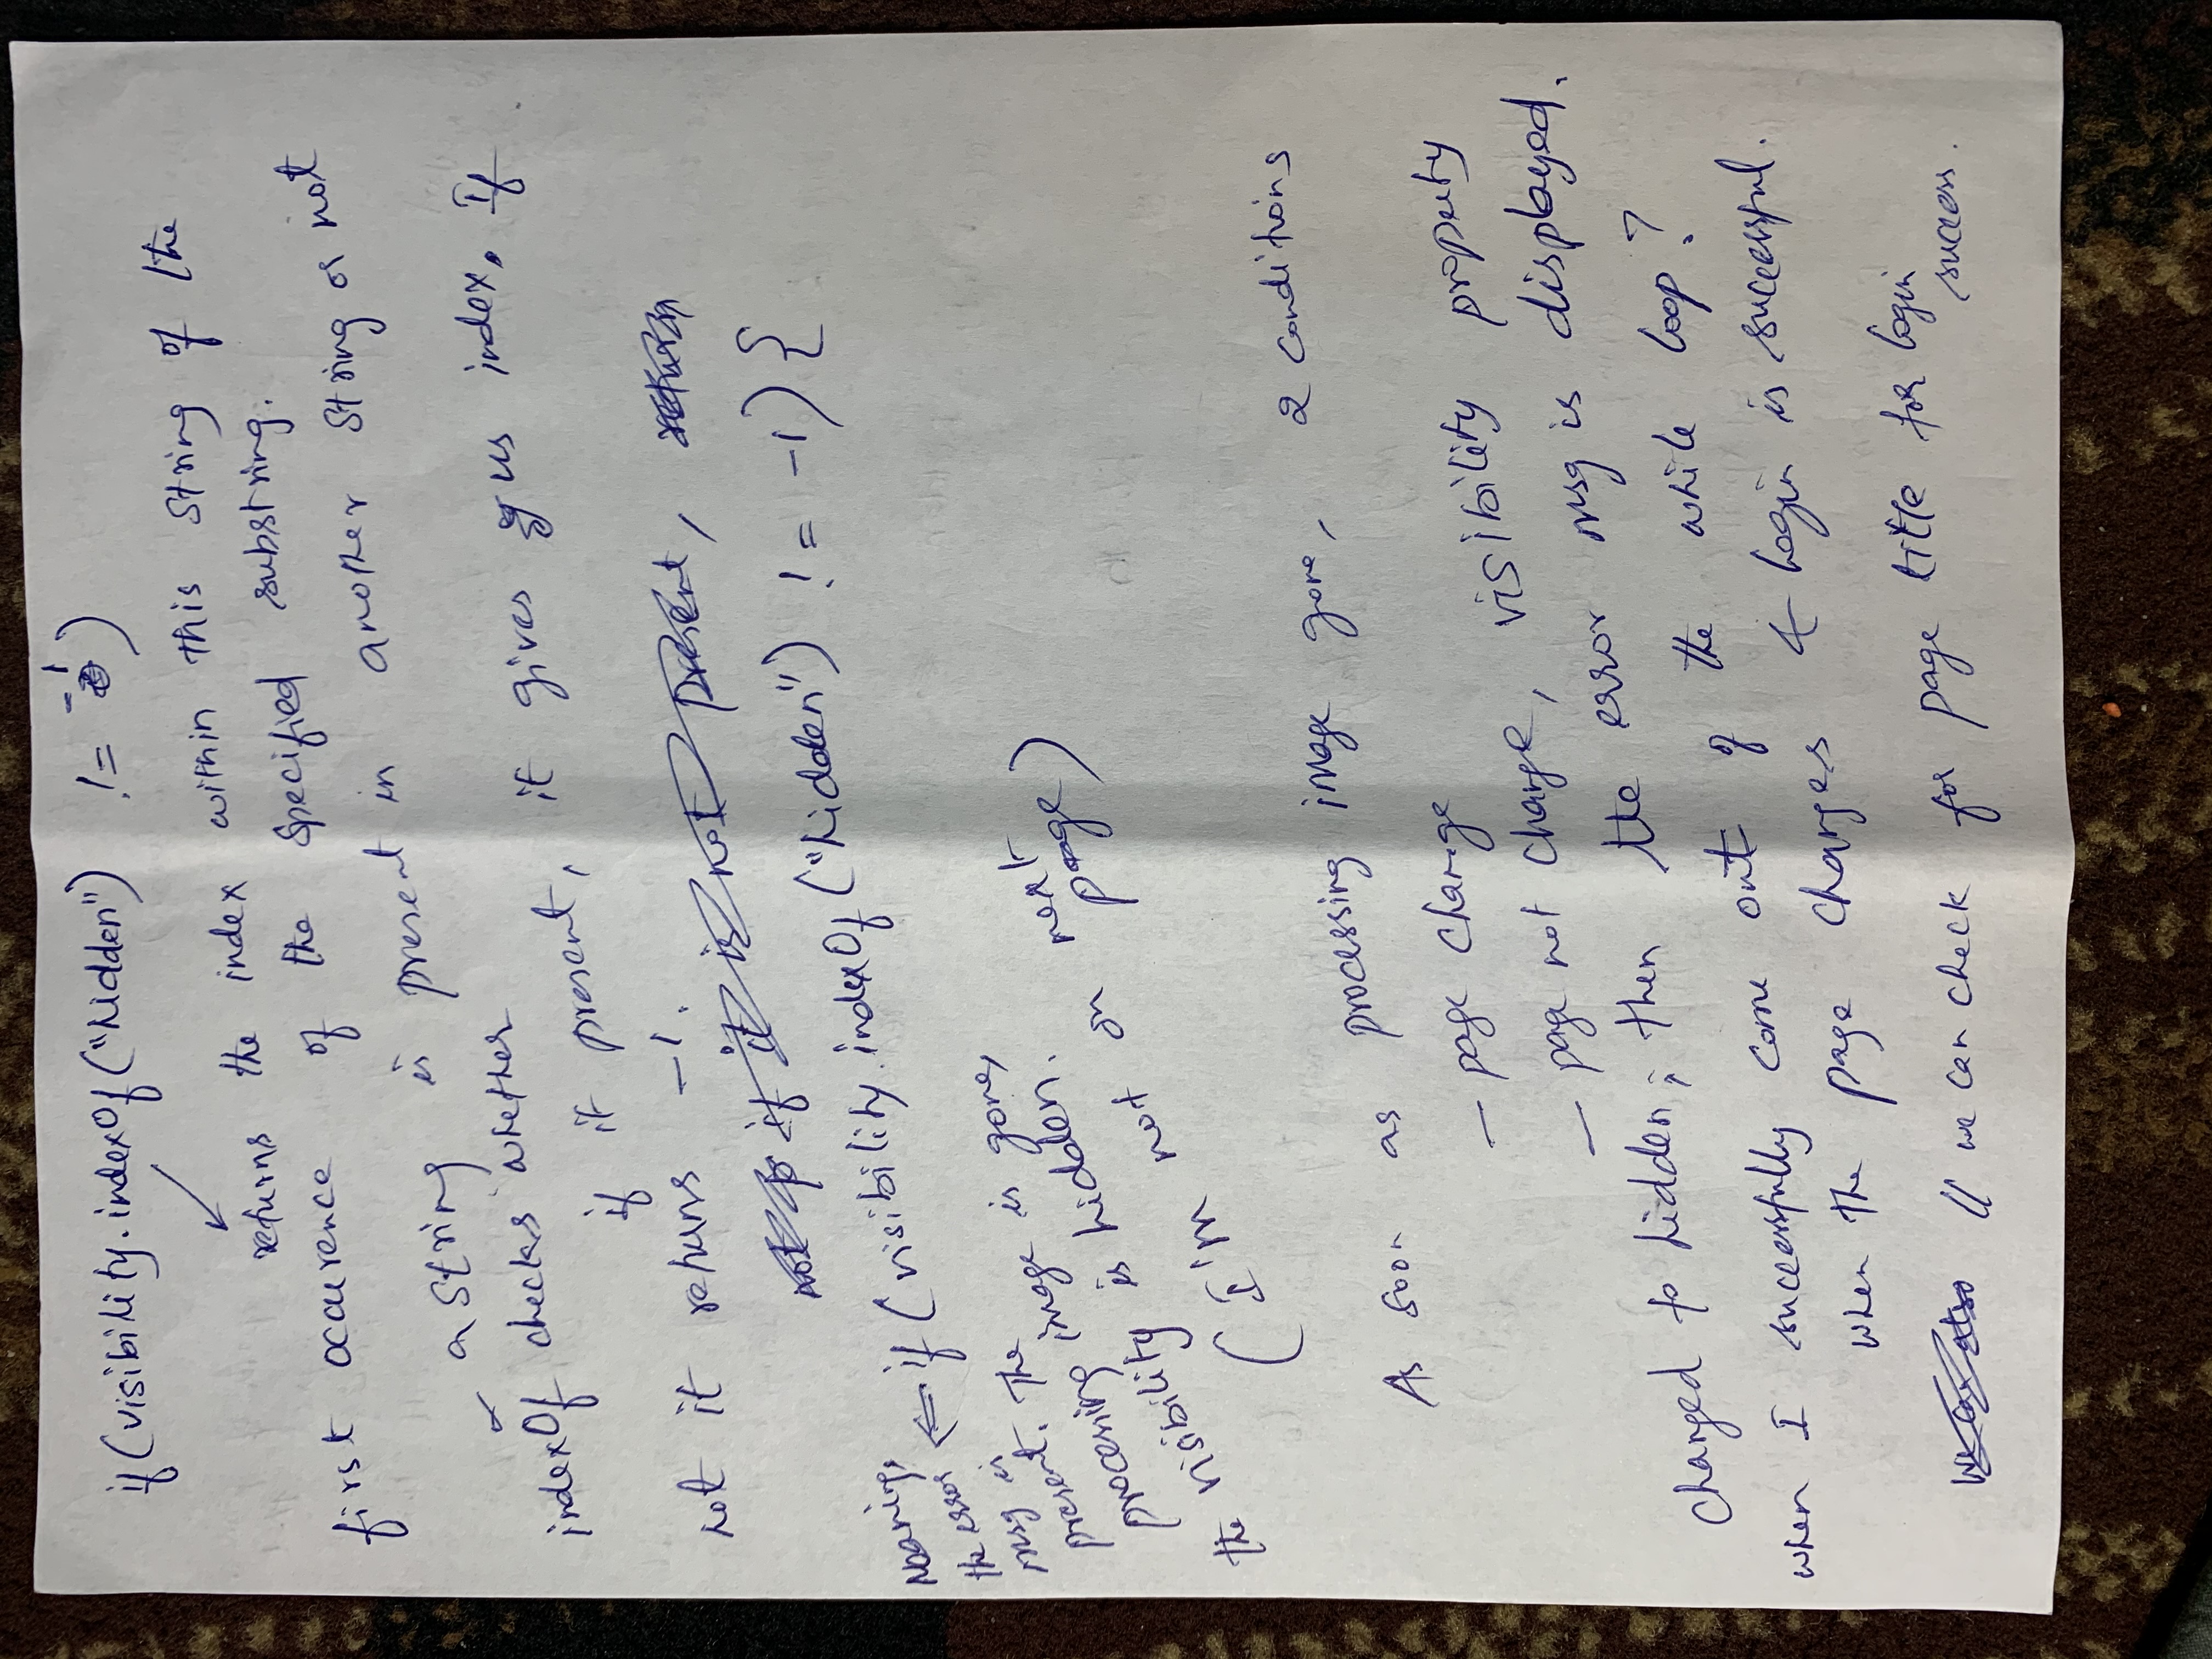 if(visibility.indexOf("hidden") != -1)
returns the index within this String of the
first occurence of the specified substring.
a String is present in another String or not
indexOf checks whether
if it present, it gives us index. If
not it returns -1.
not p if it is not present, return
if(visibility.indexOf("hidden") != -1) {
Meaning,
the error
msg is
present. The
processing image is gone,
the visibility is hidden.
(I'm not on next
page)
As soon as processing image gone, 2 conditions
- page change
- page not change, visibility property
changed to hidden, then the error msg is displayed.
when I successfully come out of the while loop?
when the page changes & login is successful.
We can also // we can check for page title for login
success.